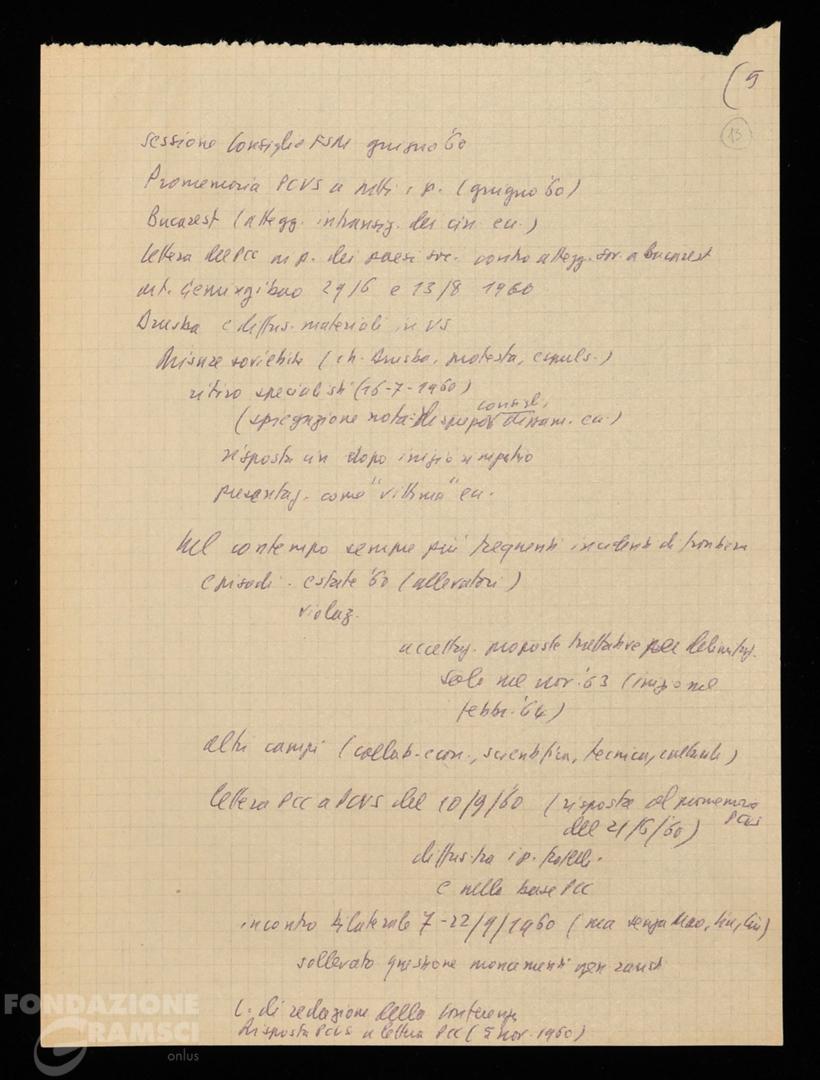 (5
13
sessione Consiglio FSM giugno '60
Promemoria PCUS a tutti i p. (giugno '60)
Bucarest (attegg. intransig. dei cin. ecc.)
lettera del PCC ai p. dei paesi soc. contro attegg. sov. a Bucarest
art. Genmingibao 29/6 e 13/8 1960
Drusba e diffus. materiali in US
Misure sovietiche (ch. Drusba, protesta, espuls.)
ritiro specialisti (16-7-1960)
consigl.
(spiegazione nota: ecc.)
risposta cin dopo inizio rimpatrio
presentaz. come "vittima" ecc.
Nel contempo sempre più frequenti incidenti di frontiera
episodi. estate '60 (allevatori)
violaz.
accettaz. proposte trattative per delimitaz.
solo nel nov. '63 (inizio nel
febbr. '64)
altri campi (collab. econ., scientifica, tecnica, culturale)
lettera PCC a PCUS del 10/9/'60 (risposta al promemoria
PCUS
del 21/6/'60)
diffus. tra i p. fratelli.
e nella base PCC
incontro bilaterale 7-22/9/1960 (ma senza Mao, Liu, Ciu)
sollevata questione
C. di redazione della Conferenza
Risposta PCUS a lettera PCC (5 nov. 1960)
FONDAZIONE
GRAMSCI
onlus